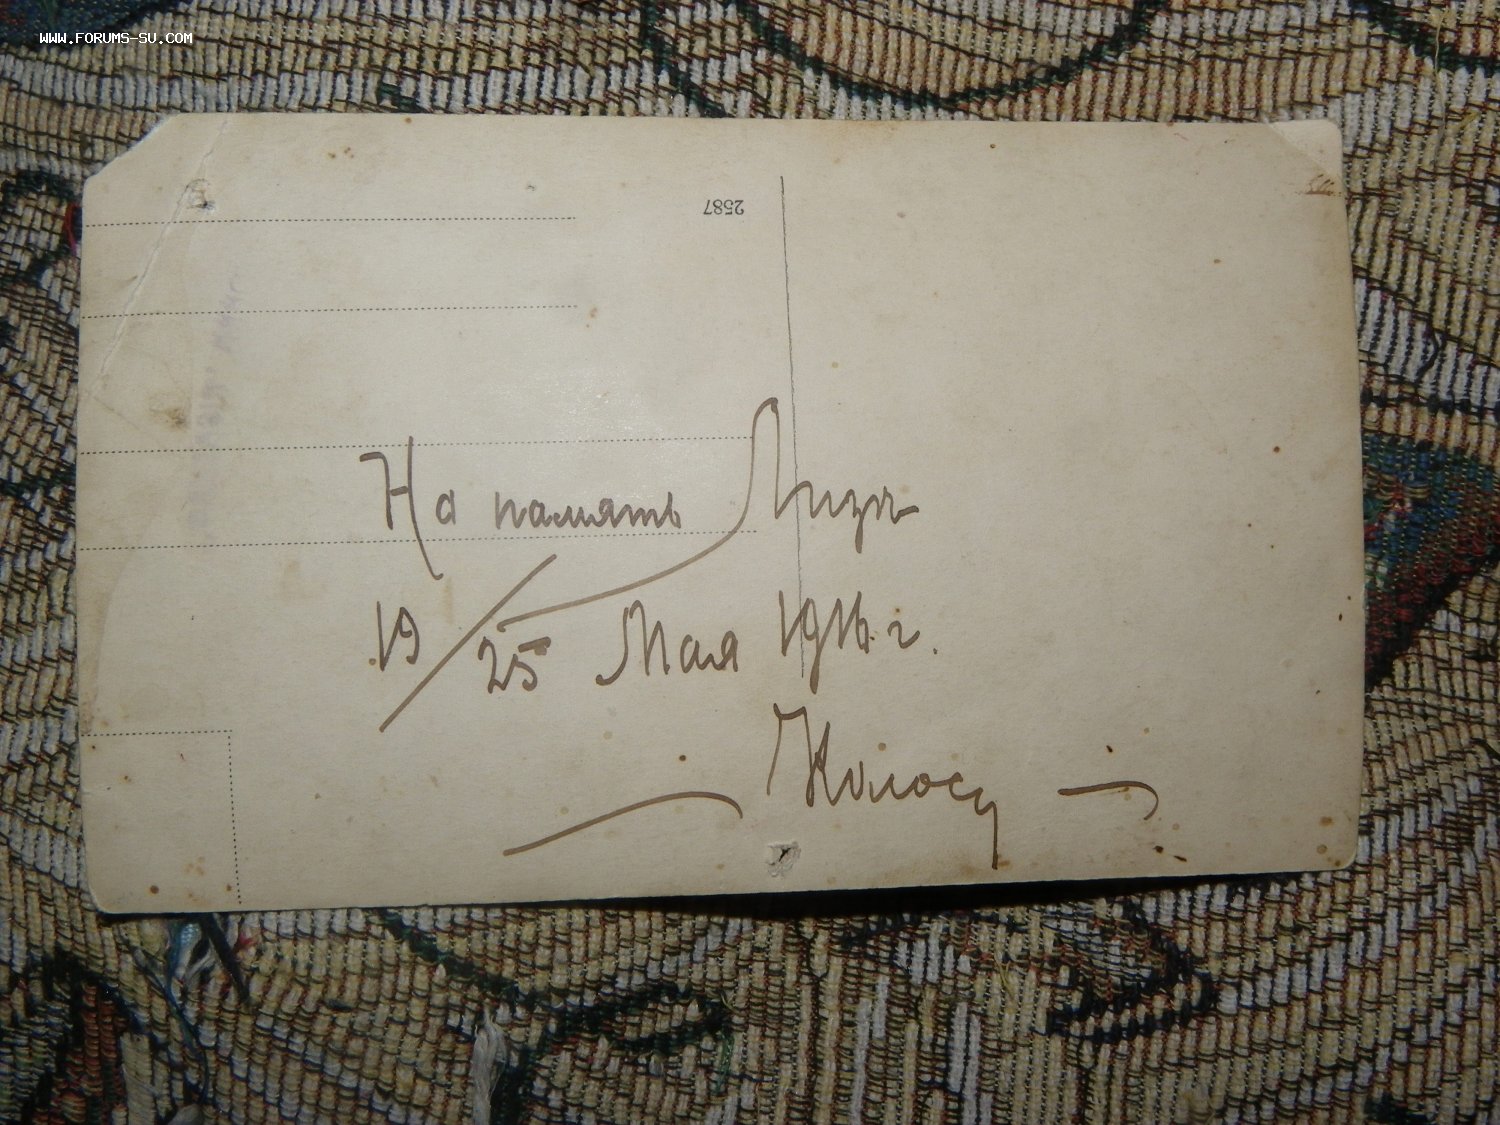 WWW.FORUMS-SU.COM
2587
На память Лизѣ
19/25 Мая 1916 г.